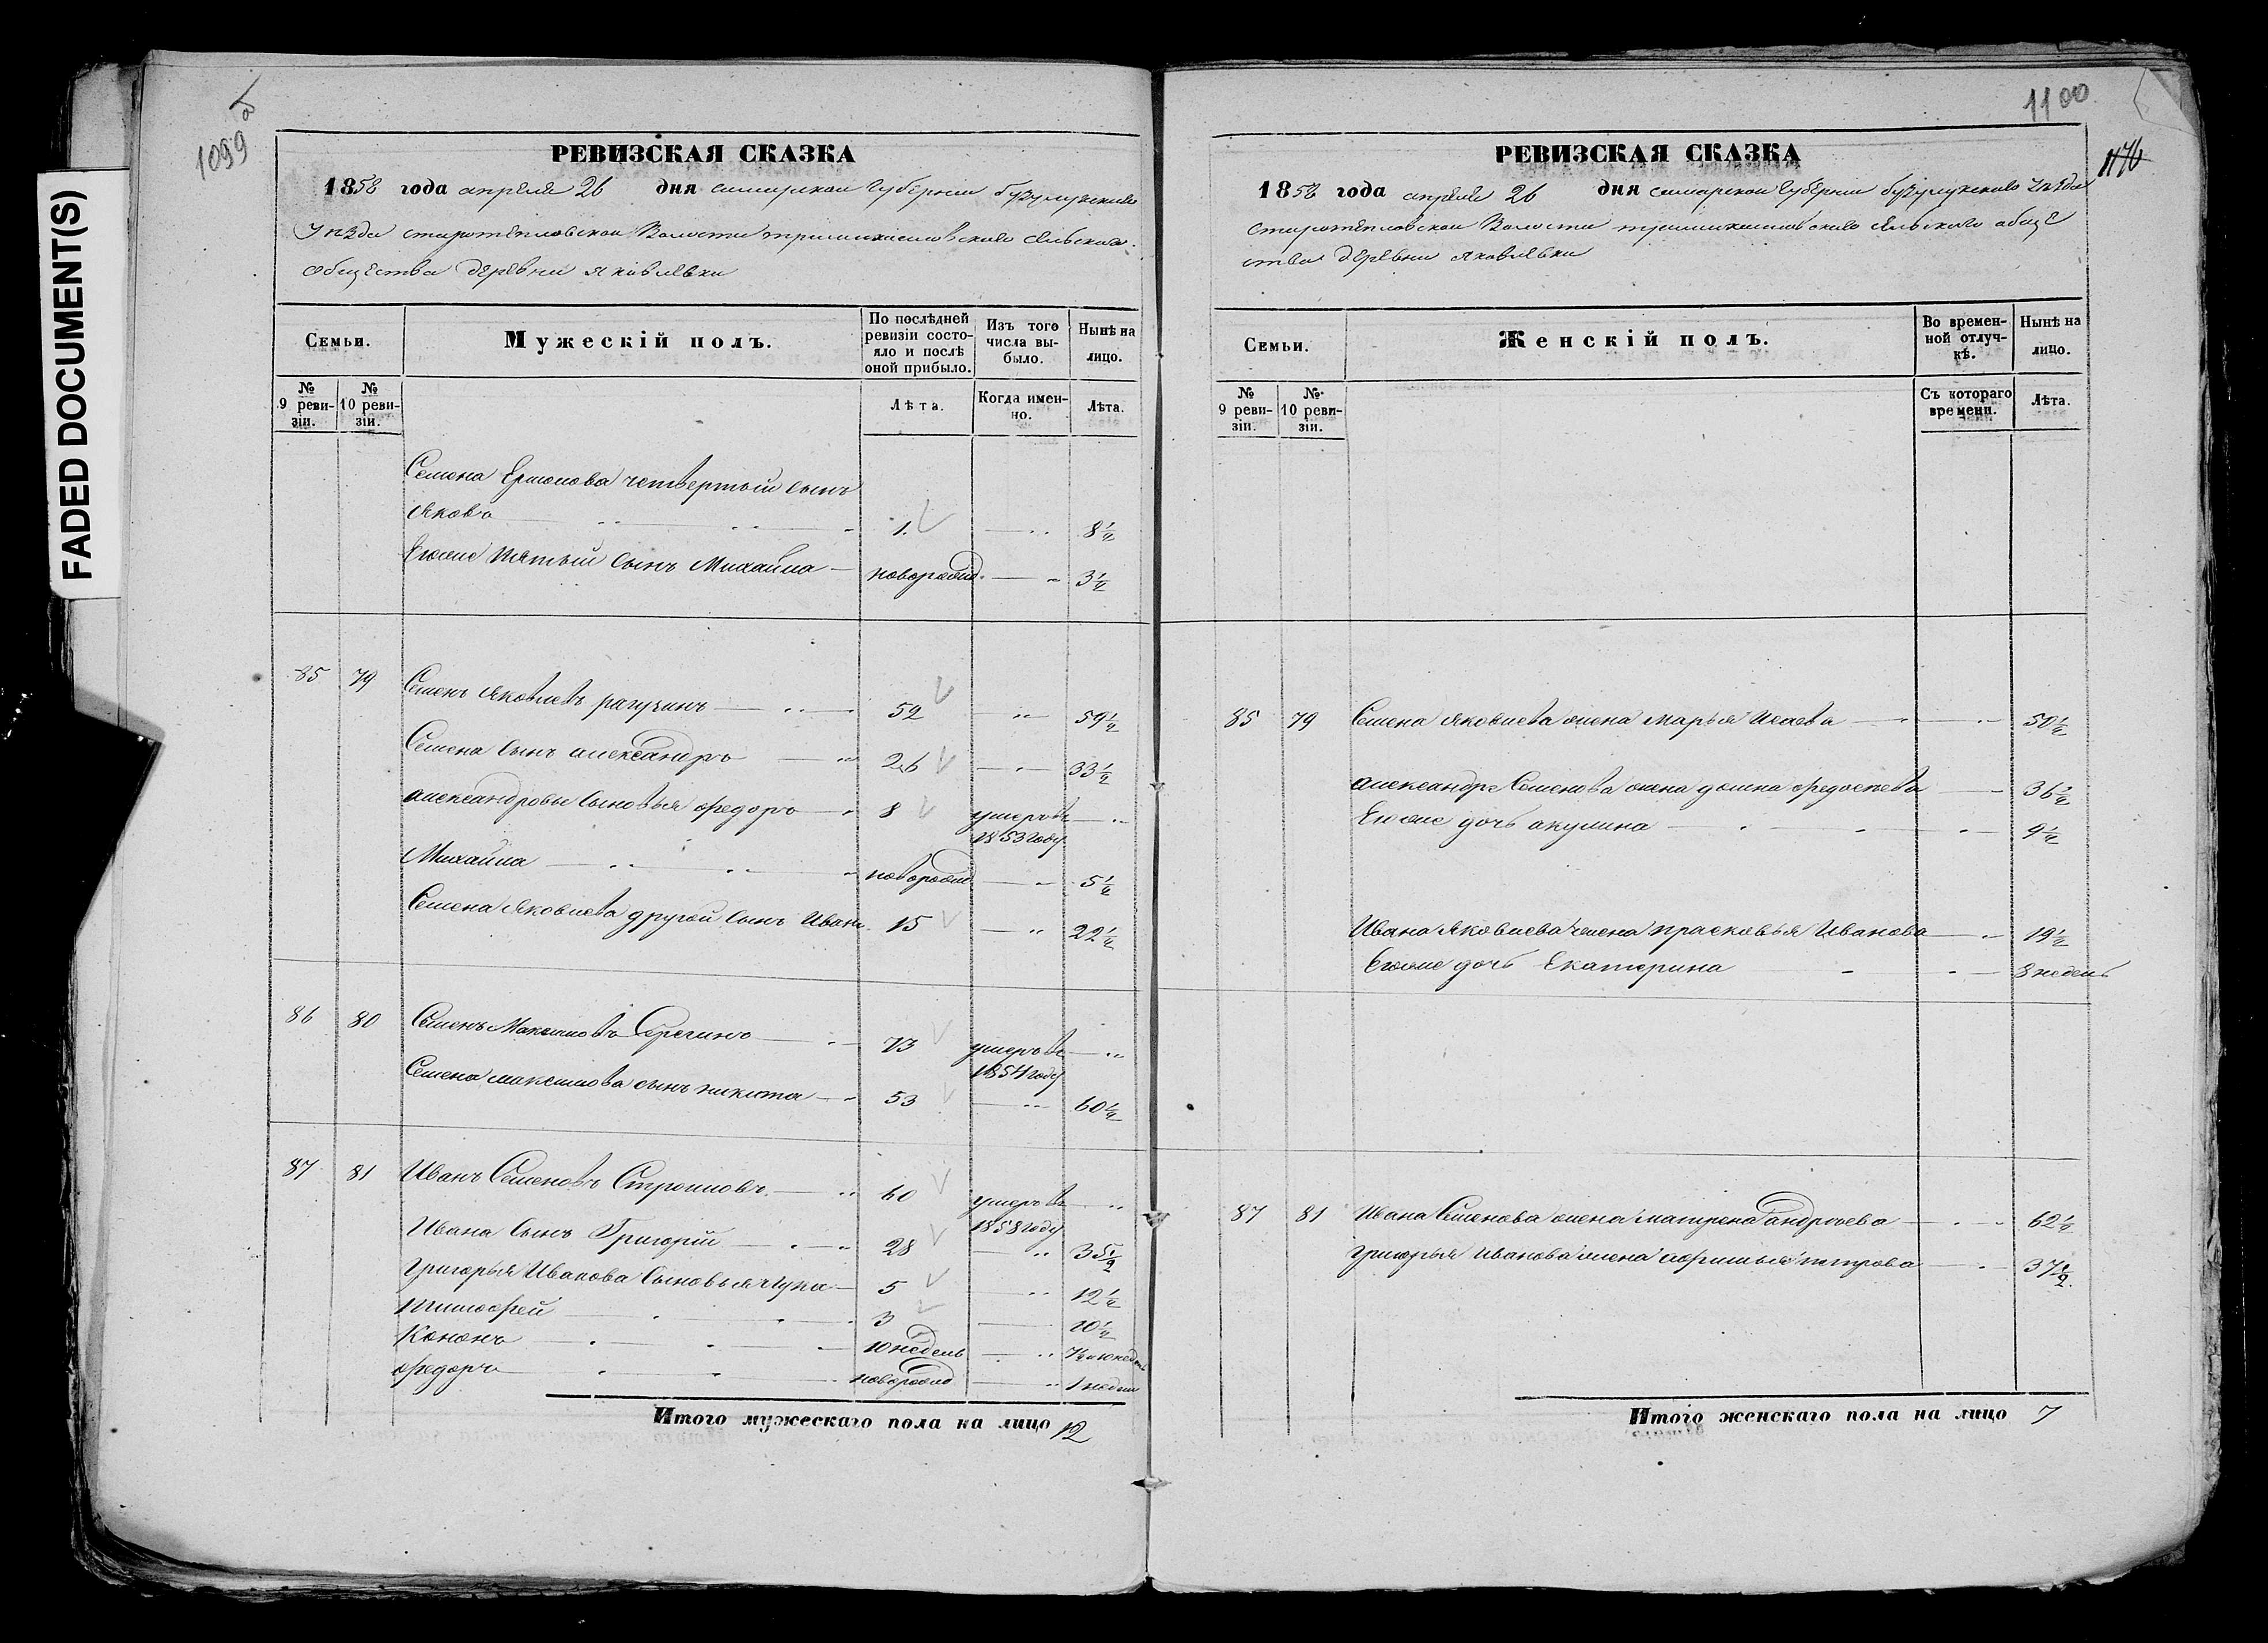 FADED DOCUMENT(S)
1099
РЕВИЗСКАЯ СКАЗКА
1858 года апреля 26 дня самарской губернии бузулукскаго
уѣзда старотепловской волости сельскаго
общества деревни яковлевки
Семьи.
Мужескій полъ.
По послѣдней ревизіи состояло и послѣ оной прибыло.
Изъ того числа выбыло.
Нынѣ на лицо.
№ 9 ревизіи.
№ 10 ревизіи.
Лѣта.
Когда именно.
Лѣта.
Семена четвертый сынъ
Яковъ 1. 8½
Егоже пятый сынъ Михайла новорожд. 3½
85 79 Семенъ Яковлевъ рагузинъ 52 59½
Семена сынъ александръ 26 33½
александровы сыновья федоръ 8 умеръ въ
1853 году
Михайла новорожд 5½
Семена Яковлева другой сынъ Иванъ 15 22½
86 80 Семенъ Максимовъ 73 умеръ въ
1854 году
Семена максимова сынъ никита 53 60½
87 81 Иванъ Семеновъ 60 умеръ въ
1858 году
Ивана сынъ Григорій 28 35½
Григорья Иванова сыновья лука 5 12½
тимофей 3 10½
Кононъ 10 недель 7½
федоръ новорожд 1 недели
Итого мужескаго пола на лицо 12
1100
1176
РЕВИЗСКАЯ СКАЗКА
1858 года апреля 26 дня самарской губернии бузулукскаго уѣзда
старотепловской волости сельскаго обще
ства деревни яковлевки
Семьи.
Женскій полъ.
Во временной отлучкѣ.
Нынѣ на лицо.
№ 9 ревизіи.
№ 10 ревизіи.
Съ котораго времени.
Лѣта.
85 79 Семена Яковлева жена марья Исаева 50½
александра Семенова жена домна федосеева 36½
Егоже дочь акулина 9½
Ивана Яковлева жена прасковья Иванова 19½
Егоже дочь Екатерина 8 недель
87 81 Ивана Семенова жена матрена андреева 62½
григорья иванова жена афимья петрова 37½
Итого женскаго пола на лицо 7